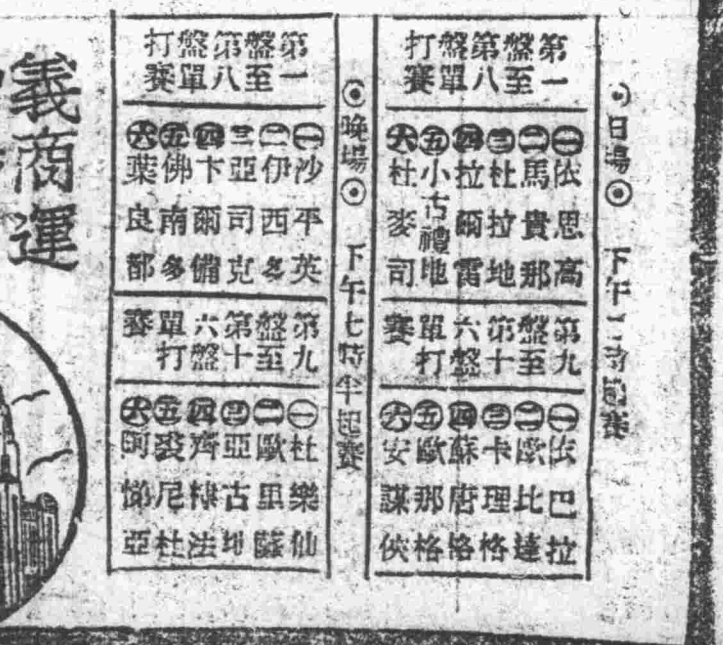 日場 下午二時起賽
第一盤至第八盤單打賽
㊀依思高
㊁馬貴那
㊂杜拉地
㊃拉爾雷
㊄小古禮地
㊅杜麥司
第九盤至第十六盤單打賽
㊀依巴拉
㊁歐比達
㊂卡理格
㊃蘇唐格
㊄歐那格
㊅安謀俠
晚場 下午七時半起賽
第一盤至第八盤單打賽
㊀沙平英
㊁伊西多
㊂亞司克
㊃卞爾備
㊄佛南多
㊅葉良都
第九盤至第十六盤單打賽
㊀杜樂仙
㊁歐里薩
㊂亞古地
㊃齊棣法
㊄裘尼杜
㊅阿悌亞
義商運